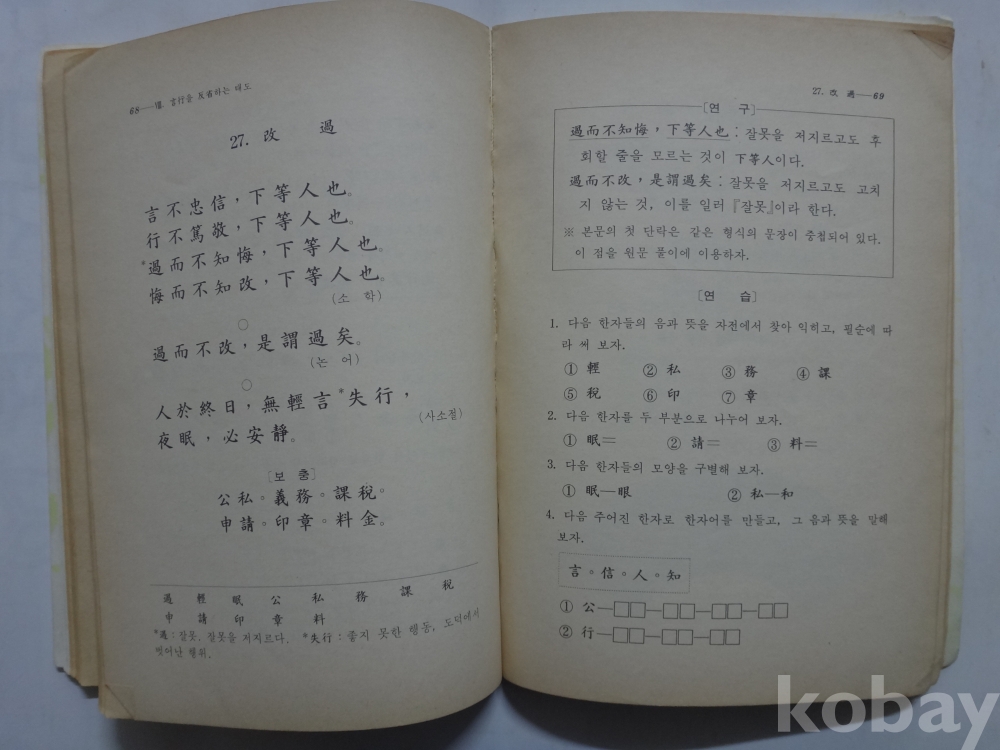 68—Ⅷ. 言行을 反省하는 태도
27. 改 過
言不忠信, 下等人也。
行不篤敬, 下等人也。
*過而不知悔, 下等人也。
悔而不知改, 下等人也。
(소 학)
○
過而不改, 是謂過矣。
(논 어)
○
人於終日, 無輕言*失行,
(사소절)
夜眠, 必安靜。
[보 충]
公私。義務。課稅。
申請。印章。料金。
過 輕 眠 公 私 務 課 稅
申 請 印 章 料
*過:잘못. 잘못을 저지르다. *失行:좋지 못한 행동, 도덕에서
벗어난 행위.
27. 改 過—69
[연 구]
過而不知悔, 下等人也:잘못을 저지르고도 후
회할 줄을 모르는 것이 下等人이다.
過而不改, 是謂過矣:잘못을 저지르고도 고치
지 않는 것, 이를 일러 『잘못』이라 한다.
※ 본문의 첫 단락은 같은 형식의 문장이 중첩되어 있다.
이 점을 원문 풀이에 이용하자.
[연 습]
1. 다음 한자들의 음과 뜻을 자전에서 찾아 익히고, 필순에 따
라 써 보자.
① 輕 ② 私 ③ 務 ④ 課
⑤ 稅 ⑥ 印 ⑦ 章
2. 다음 한자를 두 부분으로 나누어 보자.
① 眠= ② 請= ③ 料=
3. 다음 한자들의 모양을 구별해 보자.
① 眠—眼 ② 私—和
4. 다음 주어진 한자로 한자어를 만들고, 그 음과 뜻을 말해
보자.
言。信。人。知
① 公—□□—□□—□□—□□
② 行—□□—□□—□□
kobay